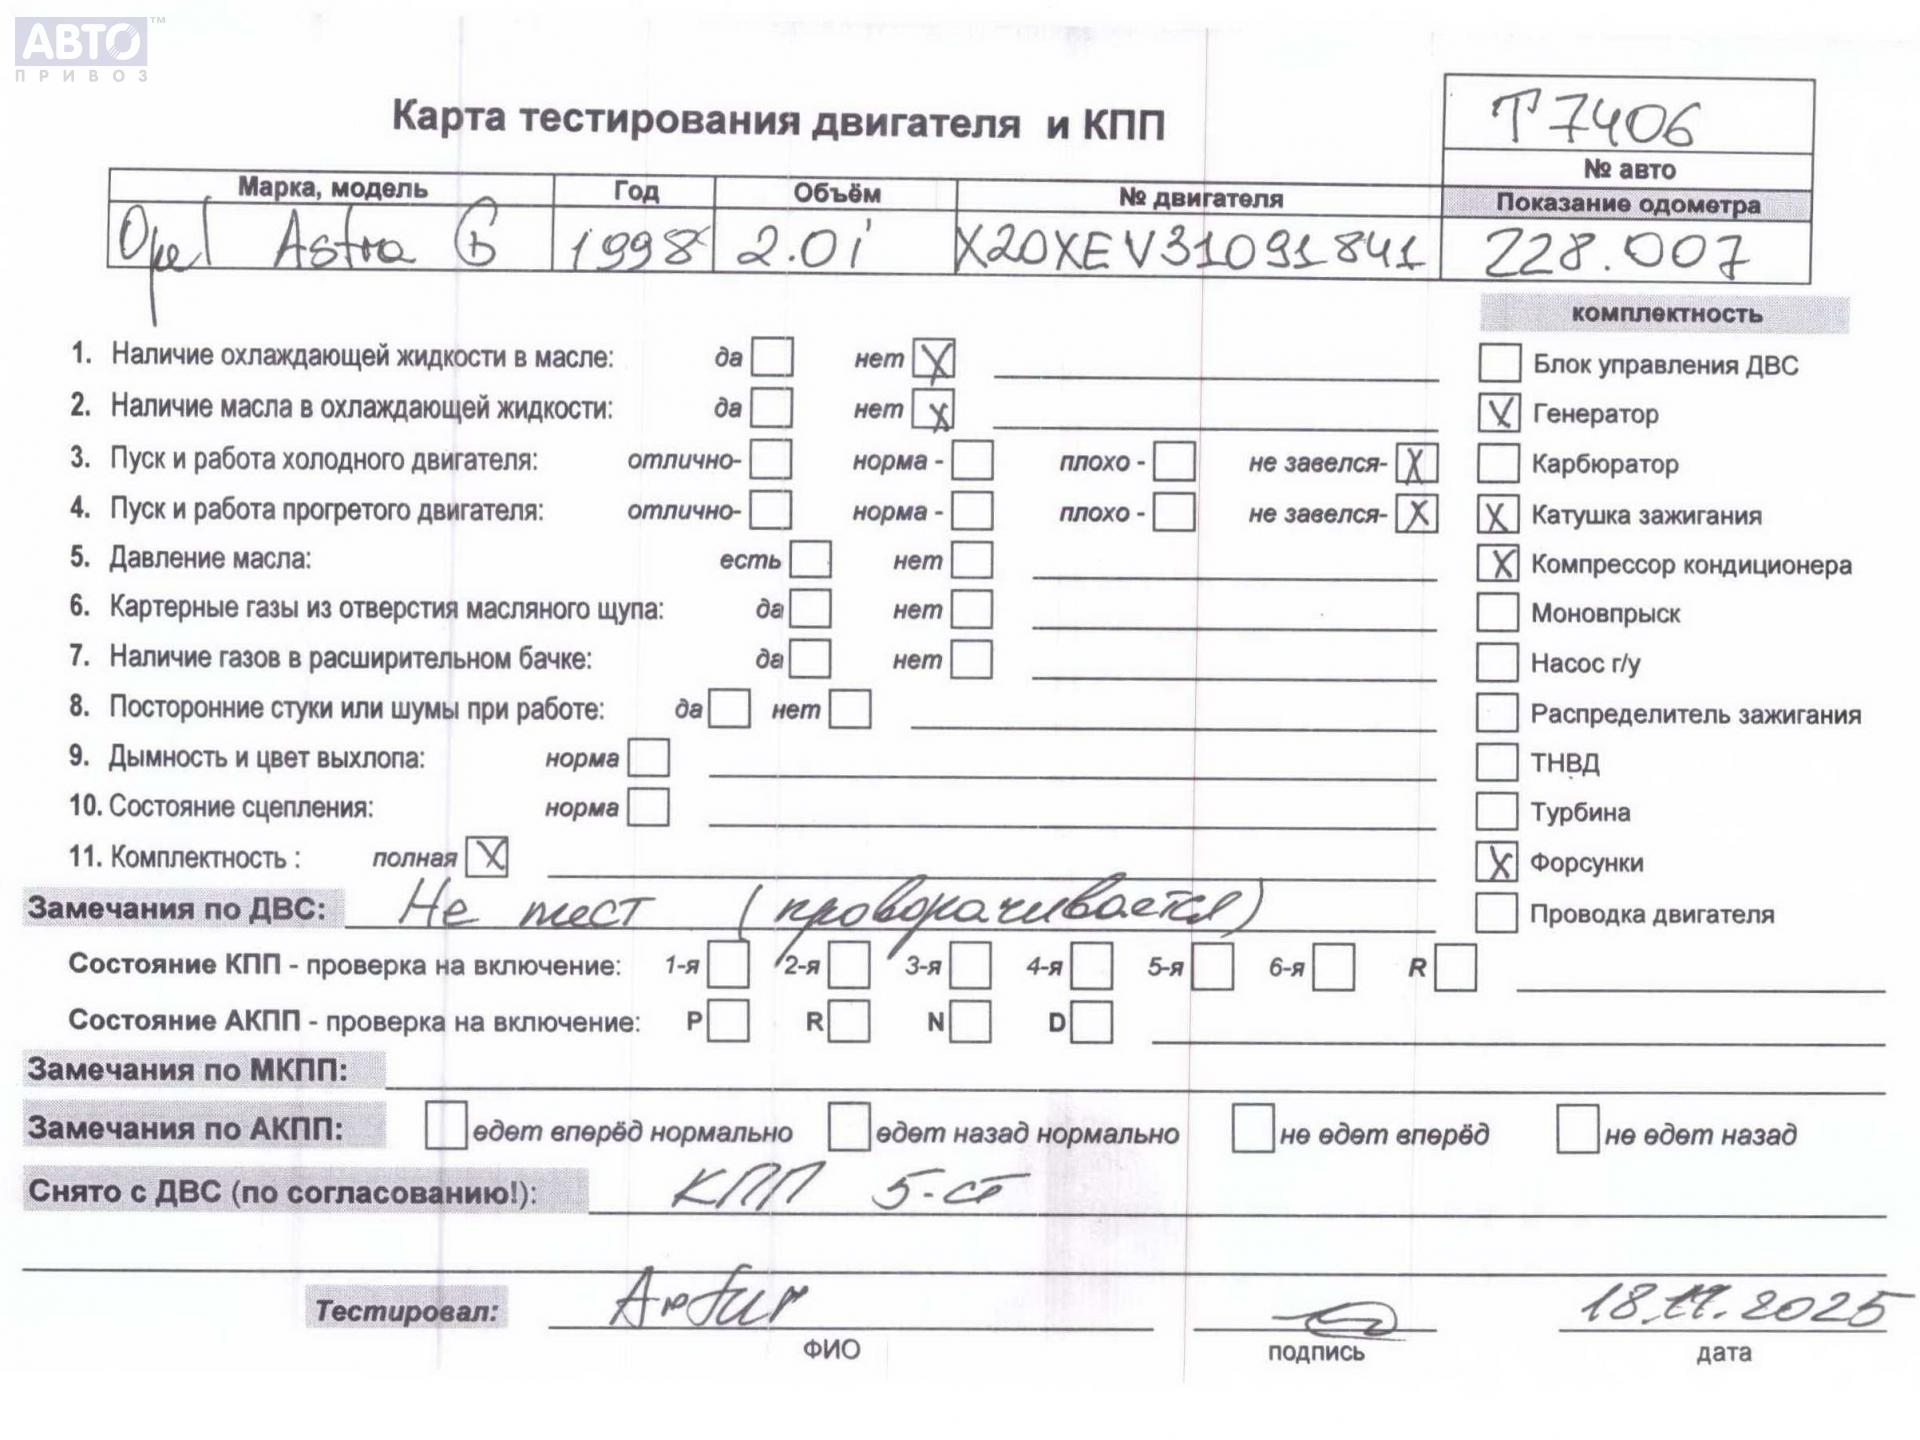 АВТО™
ПРИВОЗ
Т7406
Карта тестирования двигателя и КПП
№ авто
Марка, модель Год Объём № двигателя Показание одометра
Opel Astra G 1998 2.0i X20XEV31091841 228.007
комплектность
1. Наличие охлаждающей жидкости в масле: да нет X
Блок управления ДВС
2. Наличие масла в охлаждающей жидкости: да нет X
X Генератор
3. Пуск и работа холодного двигателя: отлично- норма - плохо - не завелся- X
Карбюратор
4. Пуск и работа прогретого двигателя: отлично- норма - плохо - не завелся- X
X Катушка зажигания
5. Давление масла: есть нет
X Компрессор кондиционера
6. Картерные газы из отверстия масляного щупа: да нет
Моновпрыск
7. Наличие газов в расширительном бачке: да нет
Насос г/у
8. Посторонние стуки или шумы при работе: да нет
Распределитель зажигания
9. Дымность и цвет выхлопа: норма
ТНВД
10. Состояние сцепления: норма
Турбина
11. Комплектность : полная X
X Форсунки
Замечания по ДВС: Не тест (проворачивается)
Проводка двигателя
Состояние КПП - проверка на включение: 1-я 2-я 3-я 4-я 5-я 6-я R
Состояние АКПП - проверка на включение: P R N D
Замечания по МКПП:
Замечания по АКПП: едет вперёд нормально едет назад нормально не едет вперёд не едет назад
Снято с ДВС (по согласованию!): КПП 5-ст
Тестировал: Artur 18.11.2025
ФИО подпись дата